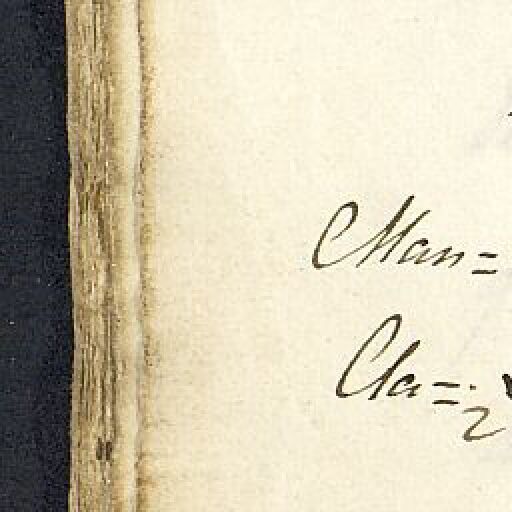 Man=
Cla=
2